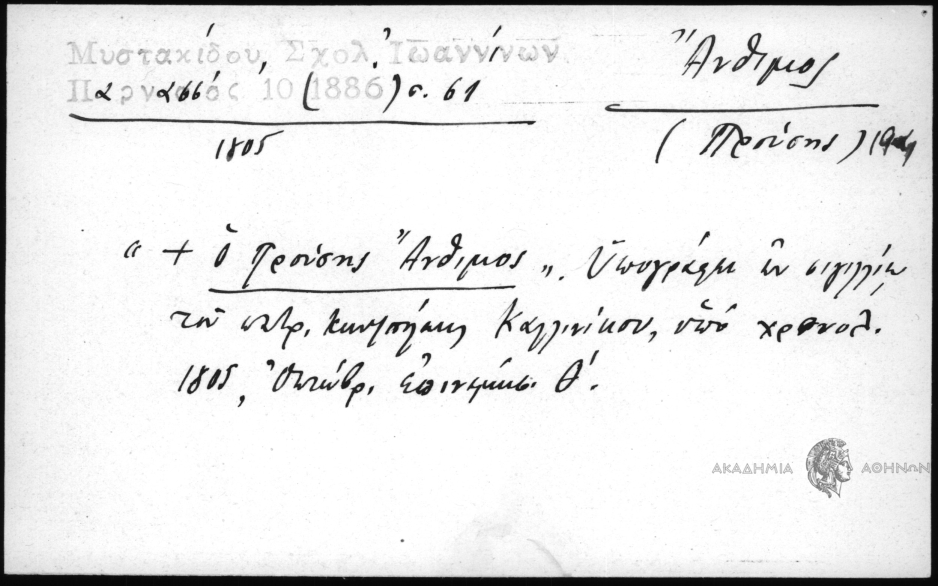 Μυστακίδου, Σχολ. Ἰωαννίνων
Παρνασσός 10 (1886) σ. 61
1805
Ἄνθιμος
(Προύσης)
“ + ὁ Προύσης Ἄνθιμος „. Ὑπογράφει ἐν σιγιλλίῳ
τοῦ πατρ. Κων)πόλεως Καλλινίκου, ὑπό χρονολ.
1805, Ὀκτώβρ. ἐπινεμήσ. Θ΄.
ΑΚΑΔΗΜΙΑ ΑΘΗΝΩΝ